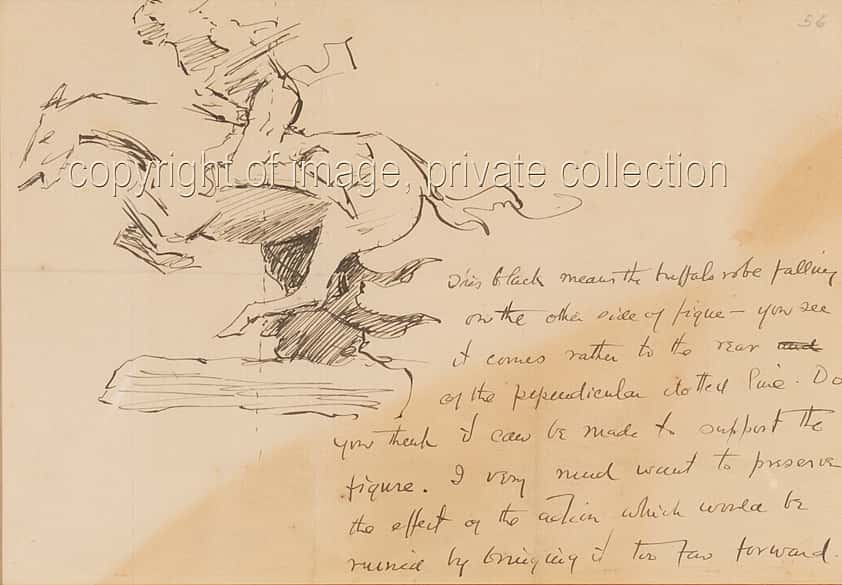 56
copyright of image, private collection
This black means the buffalo robe falling
on the other side of figue – you see
it comes rather to the rear and
of the pependicular dotted line. Do
you think it can be made to support the
figure. I very much want to preserve
the effect of the action which would be
ruined by bringing it too far forward.